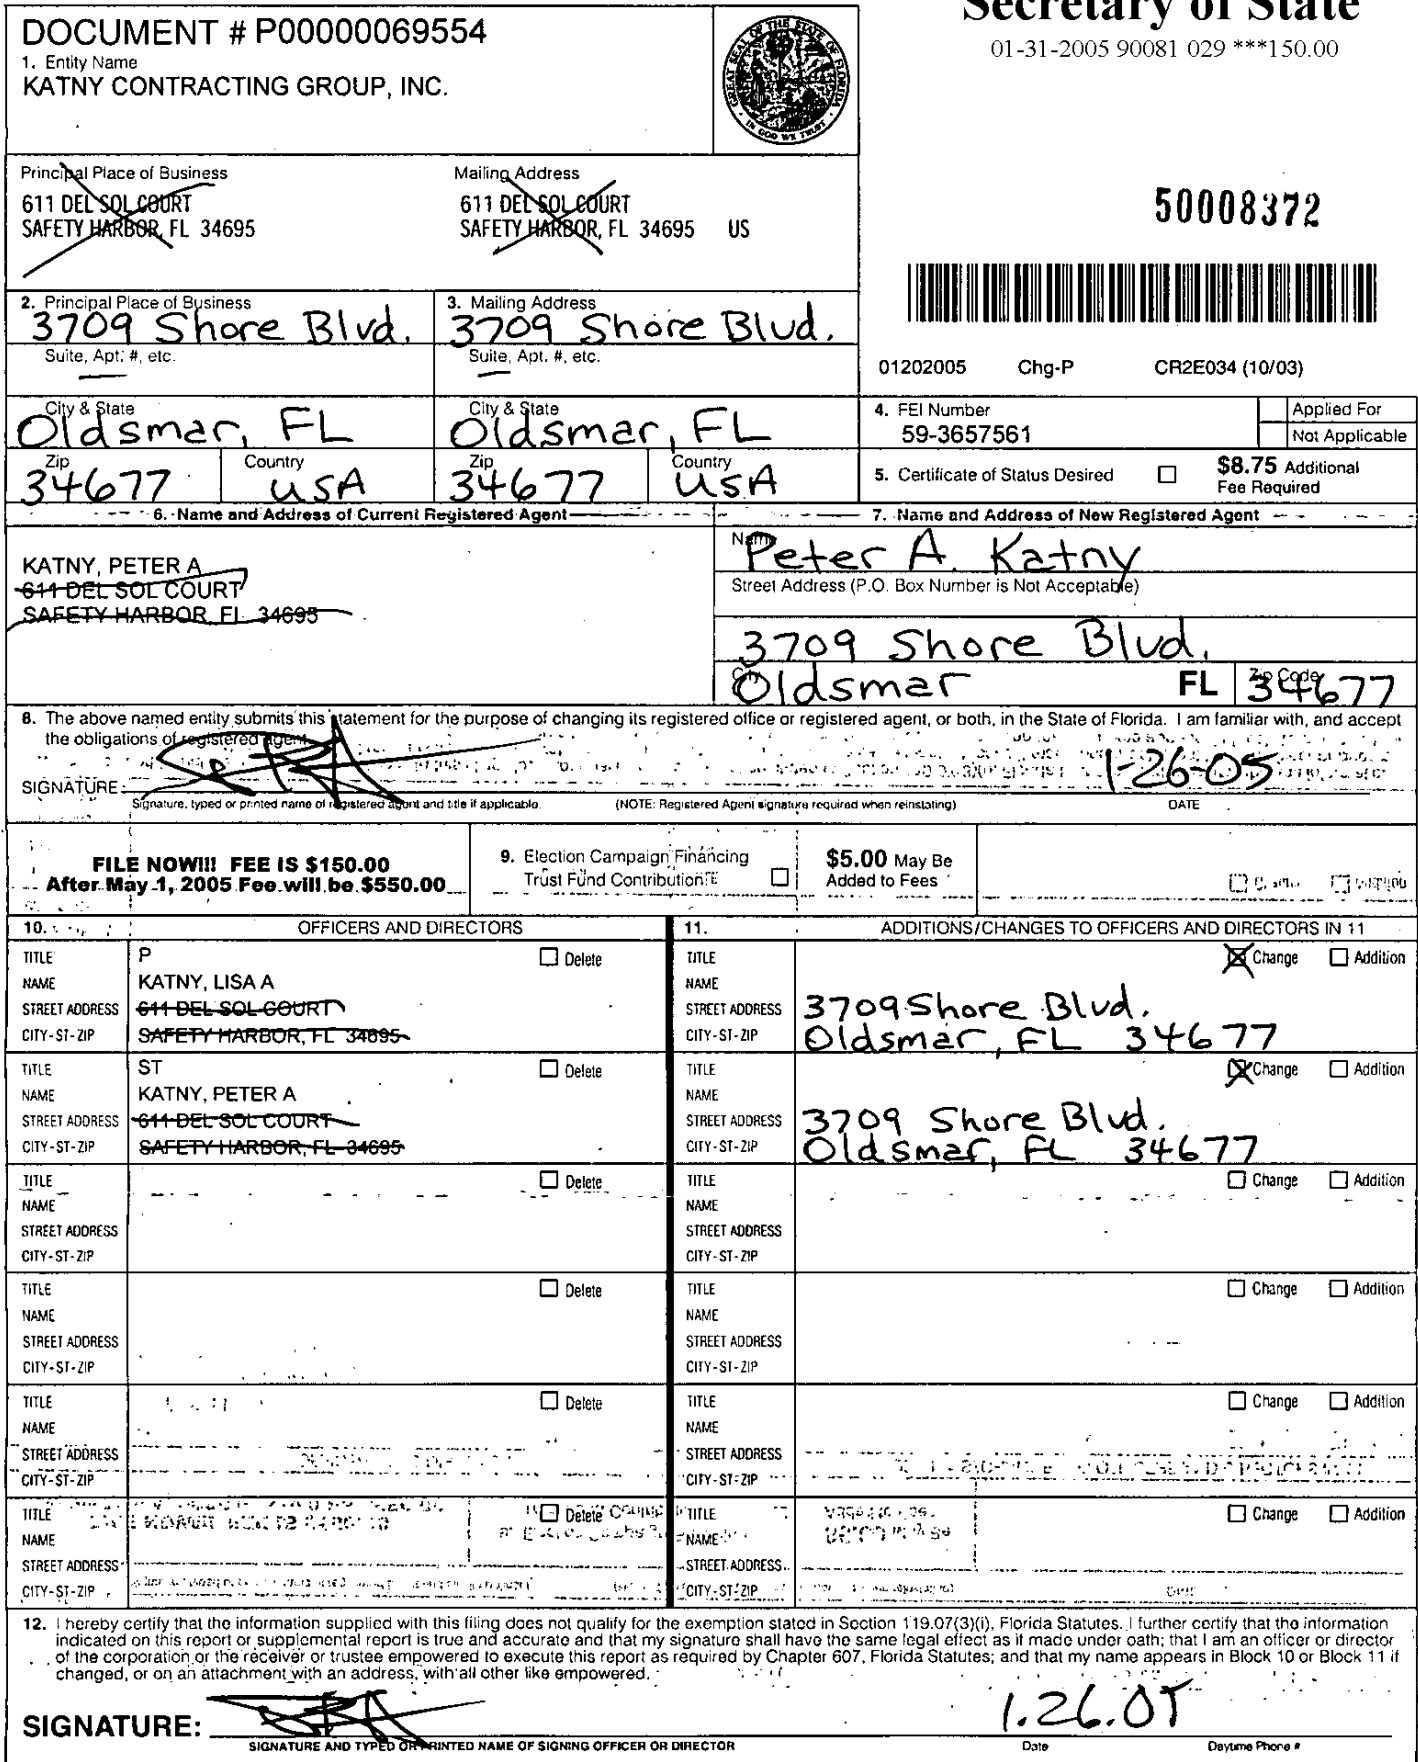 Secretary of State
01-31-2005 90081 029 ***150.00
DOCUMENT # P00000069554
1. Entity Name
KATNY CONTRACTING GROUP, INC.
GREAT SEAL OF THE STATE OF FLORIDA
IN GOD WE TRUST
Principal Place of Business
611 DEL SOL COURT
SAFETY HARBOR, FL 34695
Mailing Address
611 DEL SOL COURT
SAFETY HARBOR, FL 34695 US
50008372
2. Principal Place of Business
3709 Shore Blvd.
Suite, Apt. #, etc.
3. Mailing Address
3709 Shore Blvd.
Suite, Apt. #, etc.
01202005 Chg-P CR2E034 (10/03)
City & State
Oldsmar, FL
City & State
Oldsmar, FL
Zip
34677
Country
USA
Zip
34677
Country
USA
4. FEI Number
59-3657561
Applied For
Not Applicable
5. Certificate of Status Desired
$8.75 Additional
Fee Required
6. Name and Address of Current Registered Agent
KATNY, PETER A
611 DEL SOL COURT
SAFETY HARBOR, FL 34695
7. Name and Address of New Registered Agent
Name
Peter A. Katny
Street Address (P.O. Box Number is Not Acceptable)
3709 Shore Blvd.
City
Oldsmar FL
Zip Code
34677
8. The above named entity submits this statement for the purpose of changing its registered office or registered agent, or both, in the State of Florida. I am familiar with, and accept
the obligations of registered agent.
SIGNATURE
1-26-05
Signature, typed or printed name of registered agent and title if applicable. (NOTE: Registered Agent signature required when reinstating) DATE
FILE NOW!!! FEE IS $150.00
After May 1, 2005 Fee will be $550.00
9. Election Campaign Financing
Trust Fund Contribution
$5.00 May Be
Added to Fees
10. OFFICERS AND DIRECTORS
11. ADDITIONS/CHANGES TO OFFICERS AND DIRECTORS IN 11
TITLE P Delete
NAME KATNY, LISA A
STREET ADDRESS 611 DEL SOL COURT
CITY-ST-ZIP SAFETY HARBOR, FL 34695
TITLE Change Addition
NAME
STREET ADDRESS 3709 Shore Blvd.
CITY-ST-ZIP Oldsmar, FL 34677
TITLE ST Delete
NAME KATNY, PETER A
STREET ADDRESS 611 DEL SOL COURT
CITY-ST-ZIP SAFETY HARBOR, FL 34695
TITLE Change Addition
NAME
STREET ADDRESS 3709 Shore Blvd.
CITY-ST-ZIP Oldsmar, FL 34677
TITLE Delete
NAME
STREET ADDRESS
CITY-ST-ZIP
TITLE Change Addition
NAME
STREET ADDRESS
CITY-ST-ZIP
TITLE Delete
NAME
STREET ADDRESS
CITY-ST-ZIP
TITLE Change Addition
NAME
STREET ADDRESS
CITY-ST-ZIP
TITLE Delete
NAME
STREET ADDRESS
CITY-ST-ZIP
TITLE Change Addition
NAME
STREET ADDRESS
CITY-ST-ZIP
TITLE Delete
NAME
STREET ADDRESS
CITY-ST-ZIP
TITLE Change Addition
NAME
STREET ADDRESS
CITY-ST-ZIP
12. I hereby certify that the information supplied with this filing does not qualify for the exemption stated in Section 119.07(3)(i), Florida Statutes. I further certify that the information
indicated on this report or supplemental report is true and accurate and that my signature shall have the same legal effect as if made under oath; that I am an officer or director
of the corporation or the receiver or trustee empowered to execute this report as required by Chapter 607, Florida Statutes; and that my name appears in Block 10 or Block 11 if
changed, or on an attachment with an address, with all other like empowered.
SIGNATURE:
1.26.05
SIGNATURE AND TYPED OR PRINTED NAME OF SIGNING OFFICER OR DIRECTOR Date Daytime Phone #